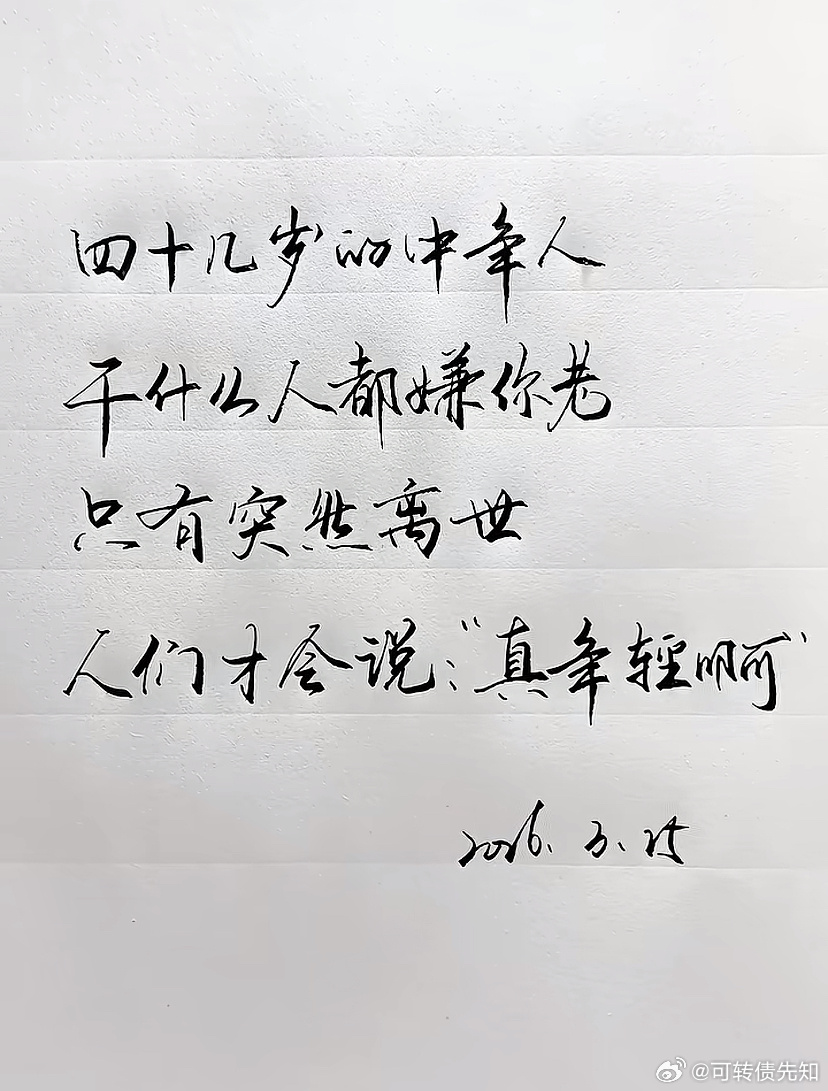 四十几岁的中年人
干什么人都嫌你老
只有突然离世
人们才会说：“真年轻啊”
2026.3.25
@可转债先知